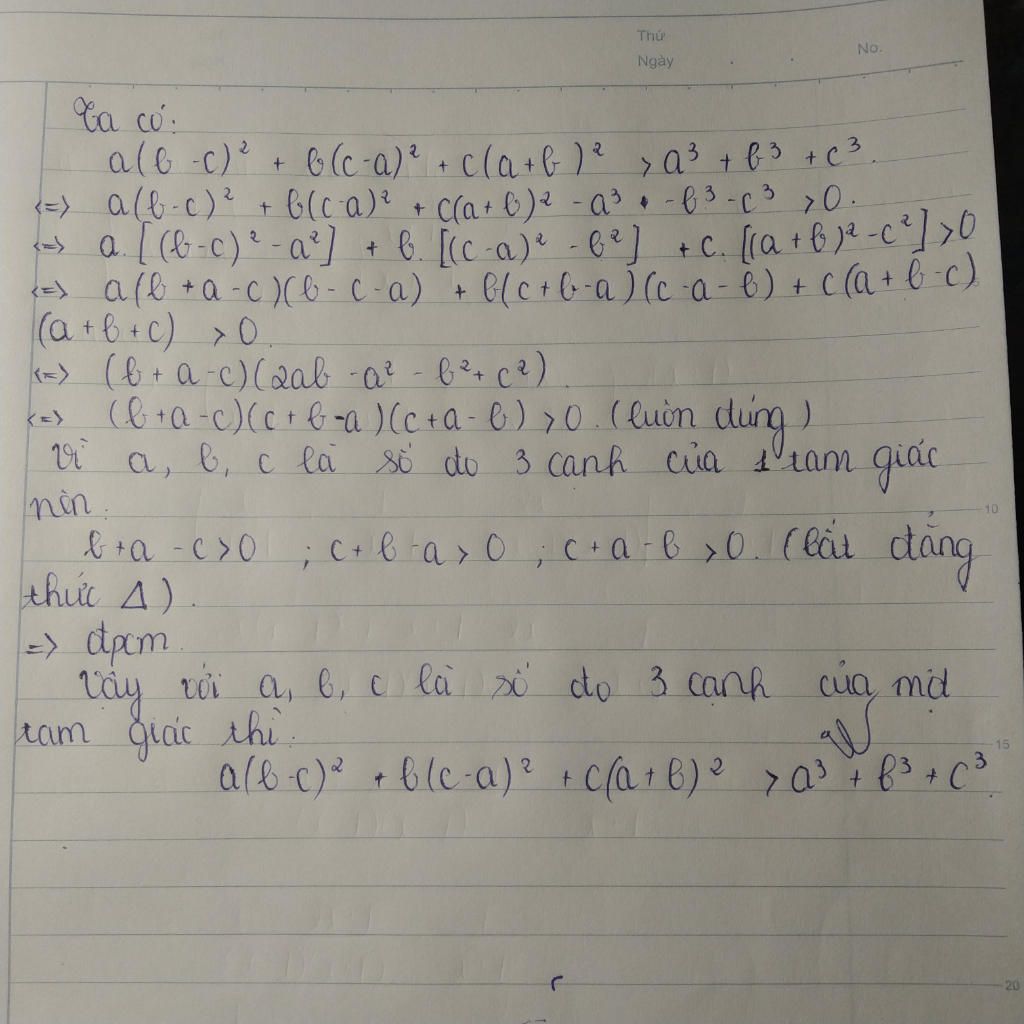 Thứ
Ngày . . No.
Ta có:
a(b-c)² + b(c-a)² + c(a+b)² > a³ + b³ + c³.
<=> a(b-c)² + b(c-a)² + c(a+b)² - a³ - b³ - c³ > 0.
<=> a.[(b-c)² - a²] + b.[(c-a)² - b²] + c.[(a+b)² - c²] > 0
<=> a(b+a-c)(b-c-a) + b(c+b-a)(c-a-b) + c(a+b-c)
(a+b+c) > 0.
<=> (b+a-c)(2ab - a² - b² + c²).
<=> (b+a-c)(c+b-a)(c+a-b) > 0. (luôn dúng)
Vì a, b, c là số do 3 canh của 1 tam giác
nên.
b+a-c>0 ; c+b-a>0 ; c+a-b>0. (bất đẳng
thức Δ).
=> đpcm.
Vậy với a, b, c là số do 3 cạnh của một
tam giác thì:
a(b-c)² + b(c-a)² + c(a+b)² > a³ + b³ + c³.
10
15
20